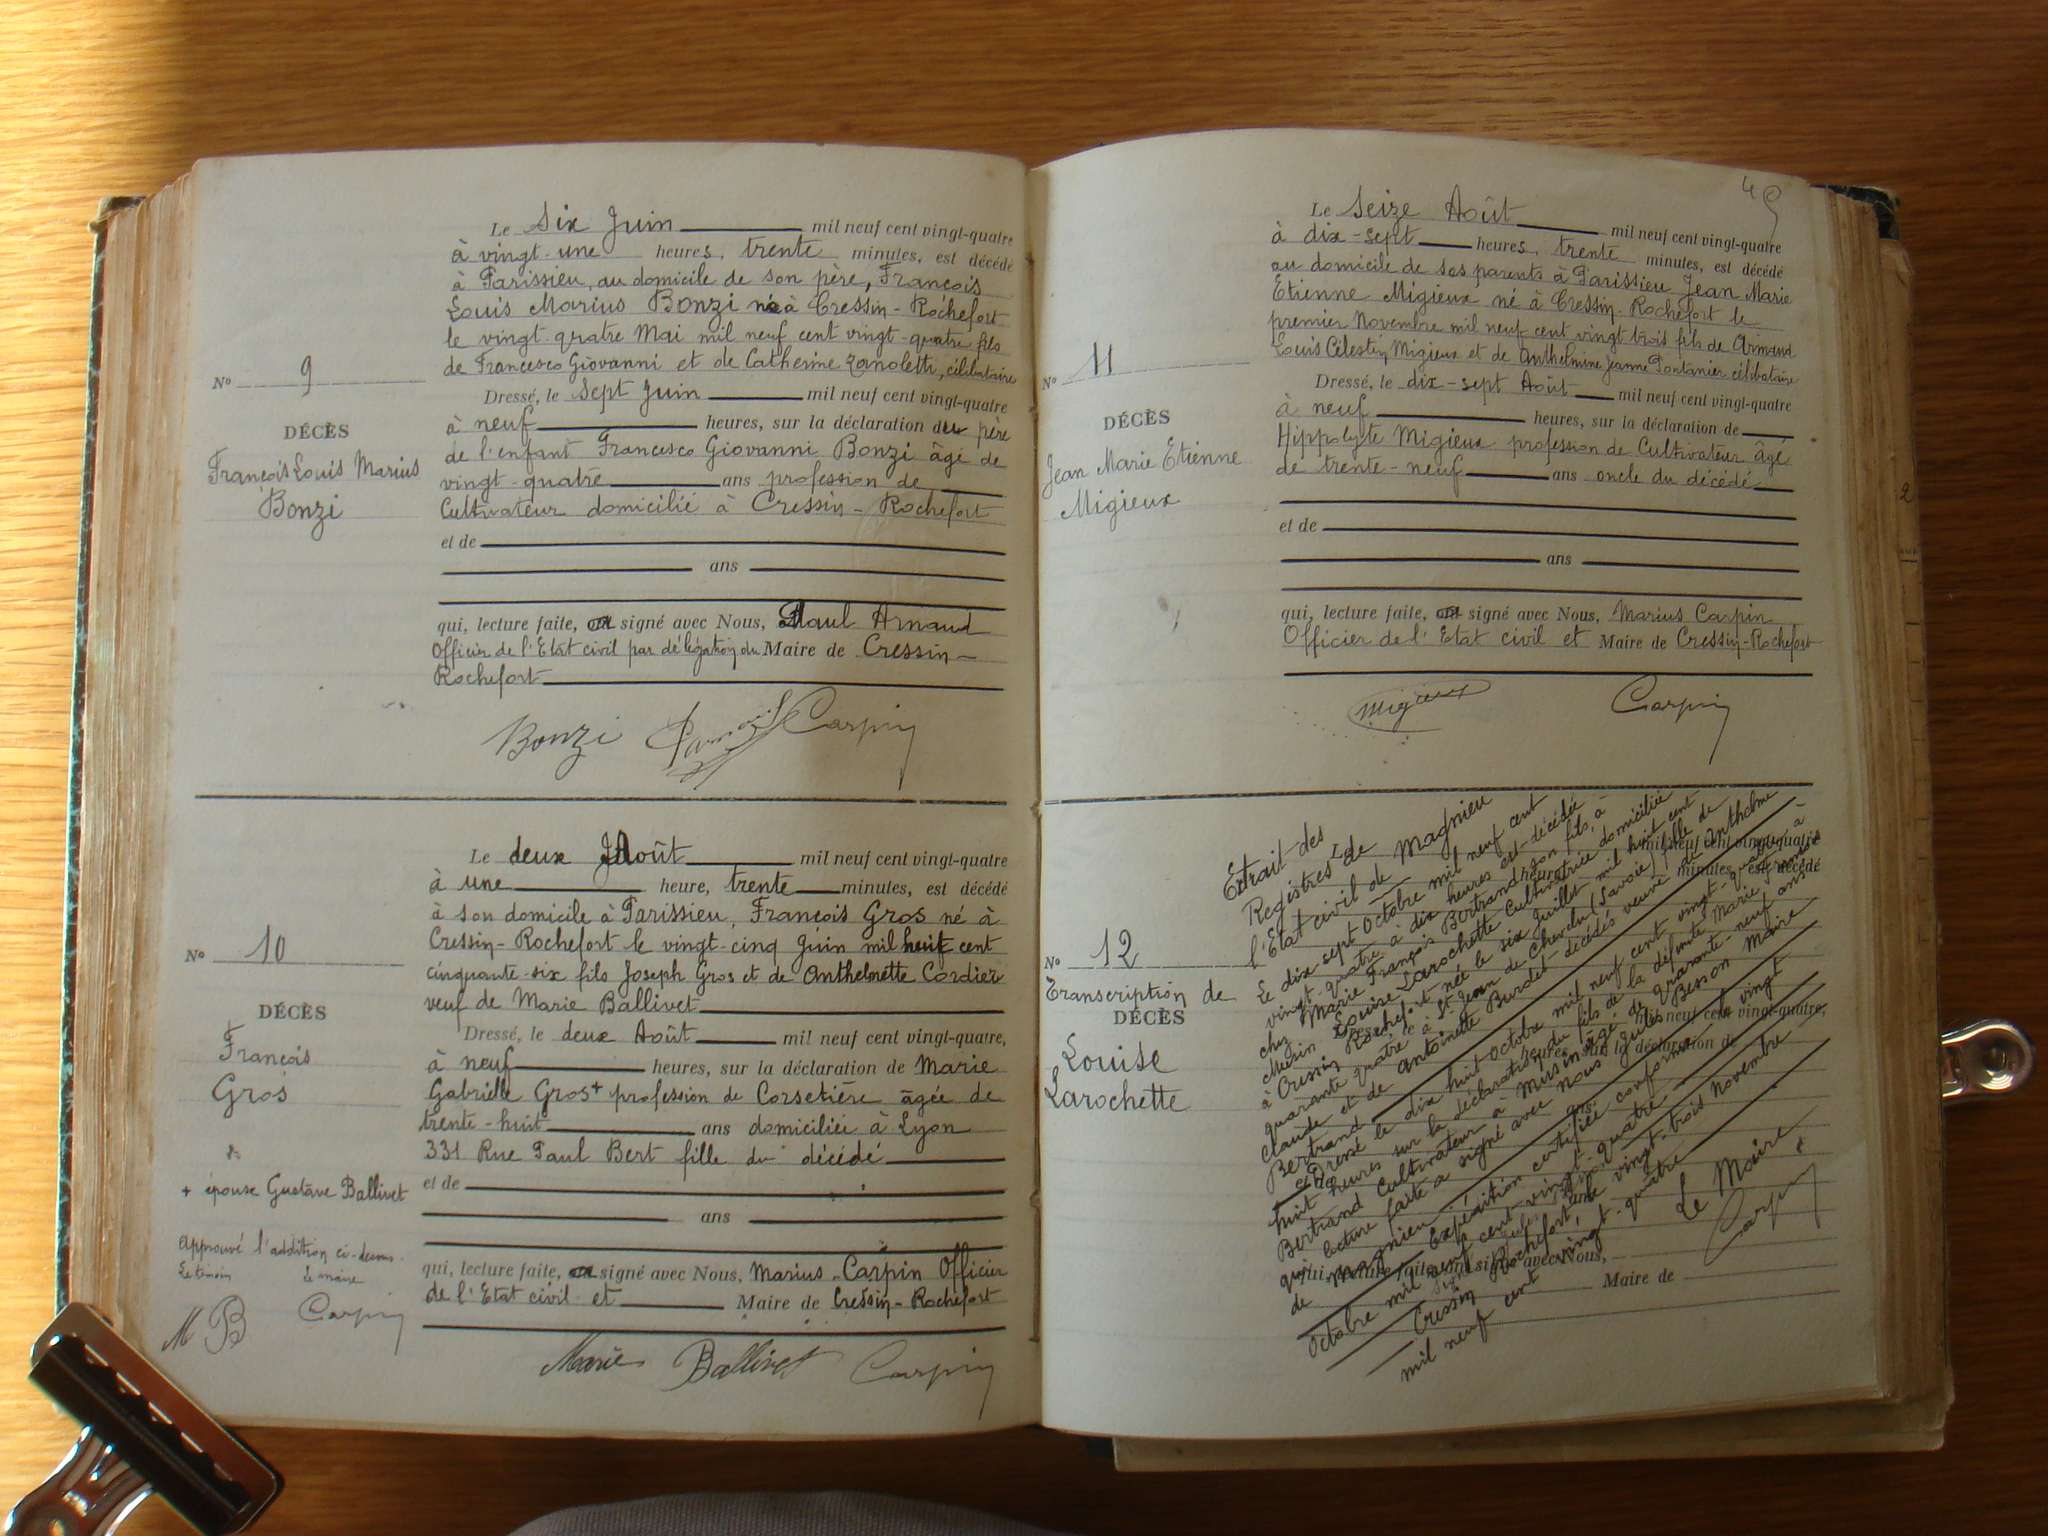 Le six Juin mil neuf cent vingt-quatre
à vingt-une heures, trente minutes, est décédé
à Parissieu, au domicile de son père, François
Louis Marius Bonzi né à Cressin-Rochefort
le vingt-quatre Mai mil neuf cent vingt-quatre fils
de Francesco Giovanni et de Catherine Zanoletti, célibataire
N° 9
DÉCÈS
François Louis Marius
Bonzi
Dressé, le sept Juin mil neuf cent vingt-quatre
à neuf heures, sur la déclaration du père
de l'enfant Francesco Giovanni Bonzi âgé de
vingt-quatre ans profession de
Cultivateur domicilié à Cressin-Rochefort
et de
ans
qui, lecture faite, a signé avec Nous, Paul Arnaud
Officier de l'Etat civil par délégation du Maire de Cressin-
Rochefort
Bonzi Carpin
Le deux Août mil neuf cent vingt-quatre
à une heure, trente minutes, est décédé
à son domicile à Parissieu, François Gros né à
Cressin-Rochefort le vingt-cinq Juin mil huit cent
cinquante-six fils Joseph Gros et de Anthelmette Cordier
veuf de Marie Ballivet
N° 10
DÉCÈS
François
Gros
Dressé, le deux Août mil neuf cent vingt-quatre,
à neuf heures, sur la déclaration de Marie
Gabrielle Gros+ profession de Corsetière âgée de
trente-huit ans domiciliée à Lyon
331 Rue Paul Bert fille du décédé
+ épouse Gustave Ballivet
Approuvé l'addition ci-dessus.
Le témoin Le maire
M B Carpin
et de
ans
qui, lecture faite, a signé avec Nous, Marius Carpin Officier
de l'Etat civil et Maire de Cressin-Rochefort
Marie Ballivet Carpin
Le Seize Août mil neuf cent vingt-quatre
à dix-sept heures, trente minutes, est décédé
au domicile de ses parents à Parissieu Jean Marie
Etienne Migieux né à Cressin-Rochefort le
premier Novembre mil neuf cent vingt trois fils de Armand
Louis Célestin Migieux et de Anthelmine Jeanne Pontanier célibataire
N° 11
DÉCÈS
Jean Marie Etienne
Migieux
Dressé, le dix-sept Août mil neuf cent vingt-quatre
à neuf heures, sur la déclaration de
Hippolyte Migieux profession de Cultivateur âgé
de trente-neuf ans oncle du décédé
et de
ans
qui, lecture faite, a signé avec Nous, Marius Carpin
Officier de l'Etat civil et Maire de Cressin-Rochefort
Migieux Carpin
N° 12
Transcription de
DÉCÈS
Louise
Larochette
Extrait des
Registres de
l'Etat civil de Magnieu
Le dix sept Octobre mil neuf cent
vingt-quatre à dix heures est décédée
chez Marie François Bertrand son fils, à
Musin Louise Larochette Cultivatrice domiciliée
à Cressin Rochefort née le six Juillet mil huit cent
quarante quatre à St Jean de Chevelu (Savoie) fille de
Claude et de Antoinette Burdet décédés veuve de Anthelme
Bertrand
Dressé le dix huit Octobre mil neuf cent vingt-quatre à
huit heures sur la déclaration du fils de la défunte Marie
Bertrand Cultivateur à Musin âgé de quarante-neuf ans
qui lecture faite a signé avec nous Jules Besson Maire
de Magnieu
Expédition certifiée conforme le vingt
Octobre mil neuf cent vingt-quatre
Cressin Rochefort, le vingt-trois Novembre
mil neuf cent vingt-quatre
Le Maire
Carpin
mil neuf cent vingt-quatre
minutes, est décédé
mil neuf cent vingt-quatre,
heures, sur la déclaration de
qui, lecture faite, signé avec Nous,
Maire de